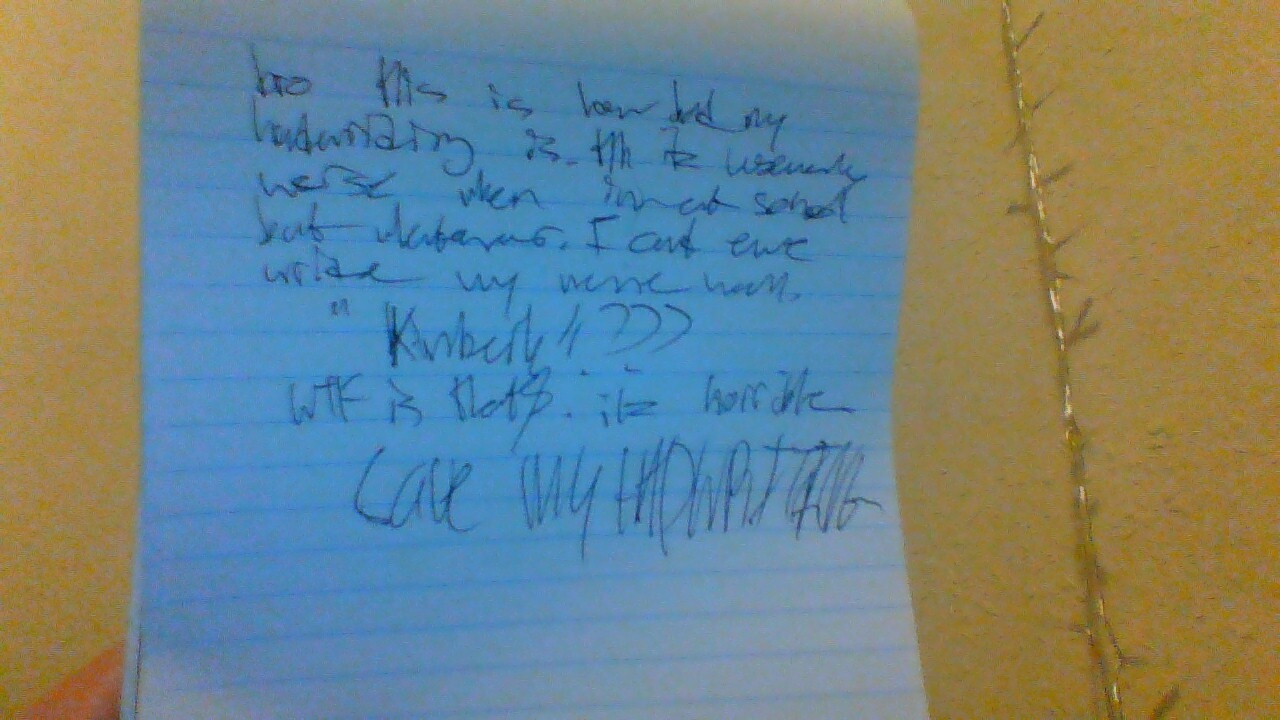 bro this is how bad my
handwriting is. this is
worse when im at school
but whatever. I cant even
write my name well.
"Kimberly"???
WTF is that?. its horrible
SAVE MY HANDWRITING